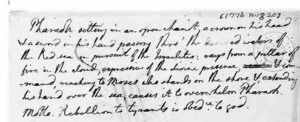 [1776 Aug 20]
Pharaoh sitting in an open chariot, a crown on his head
& a sword in his hand passing thro' the divided waters of
the Red sea in pursuit of the Israelites: rays from a pillar of
fire in the cloud, expressive of the divine presence & com-
mand, reaching to Moses who stands on the shore & extending
his hand over the sea, causes it to overwhelm Pharaoh.
Motto. Rebellion to tyrants is obedce to god.